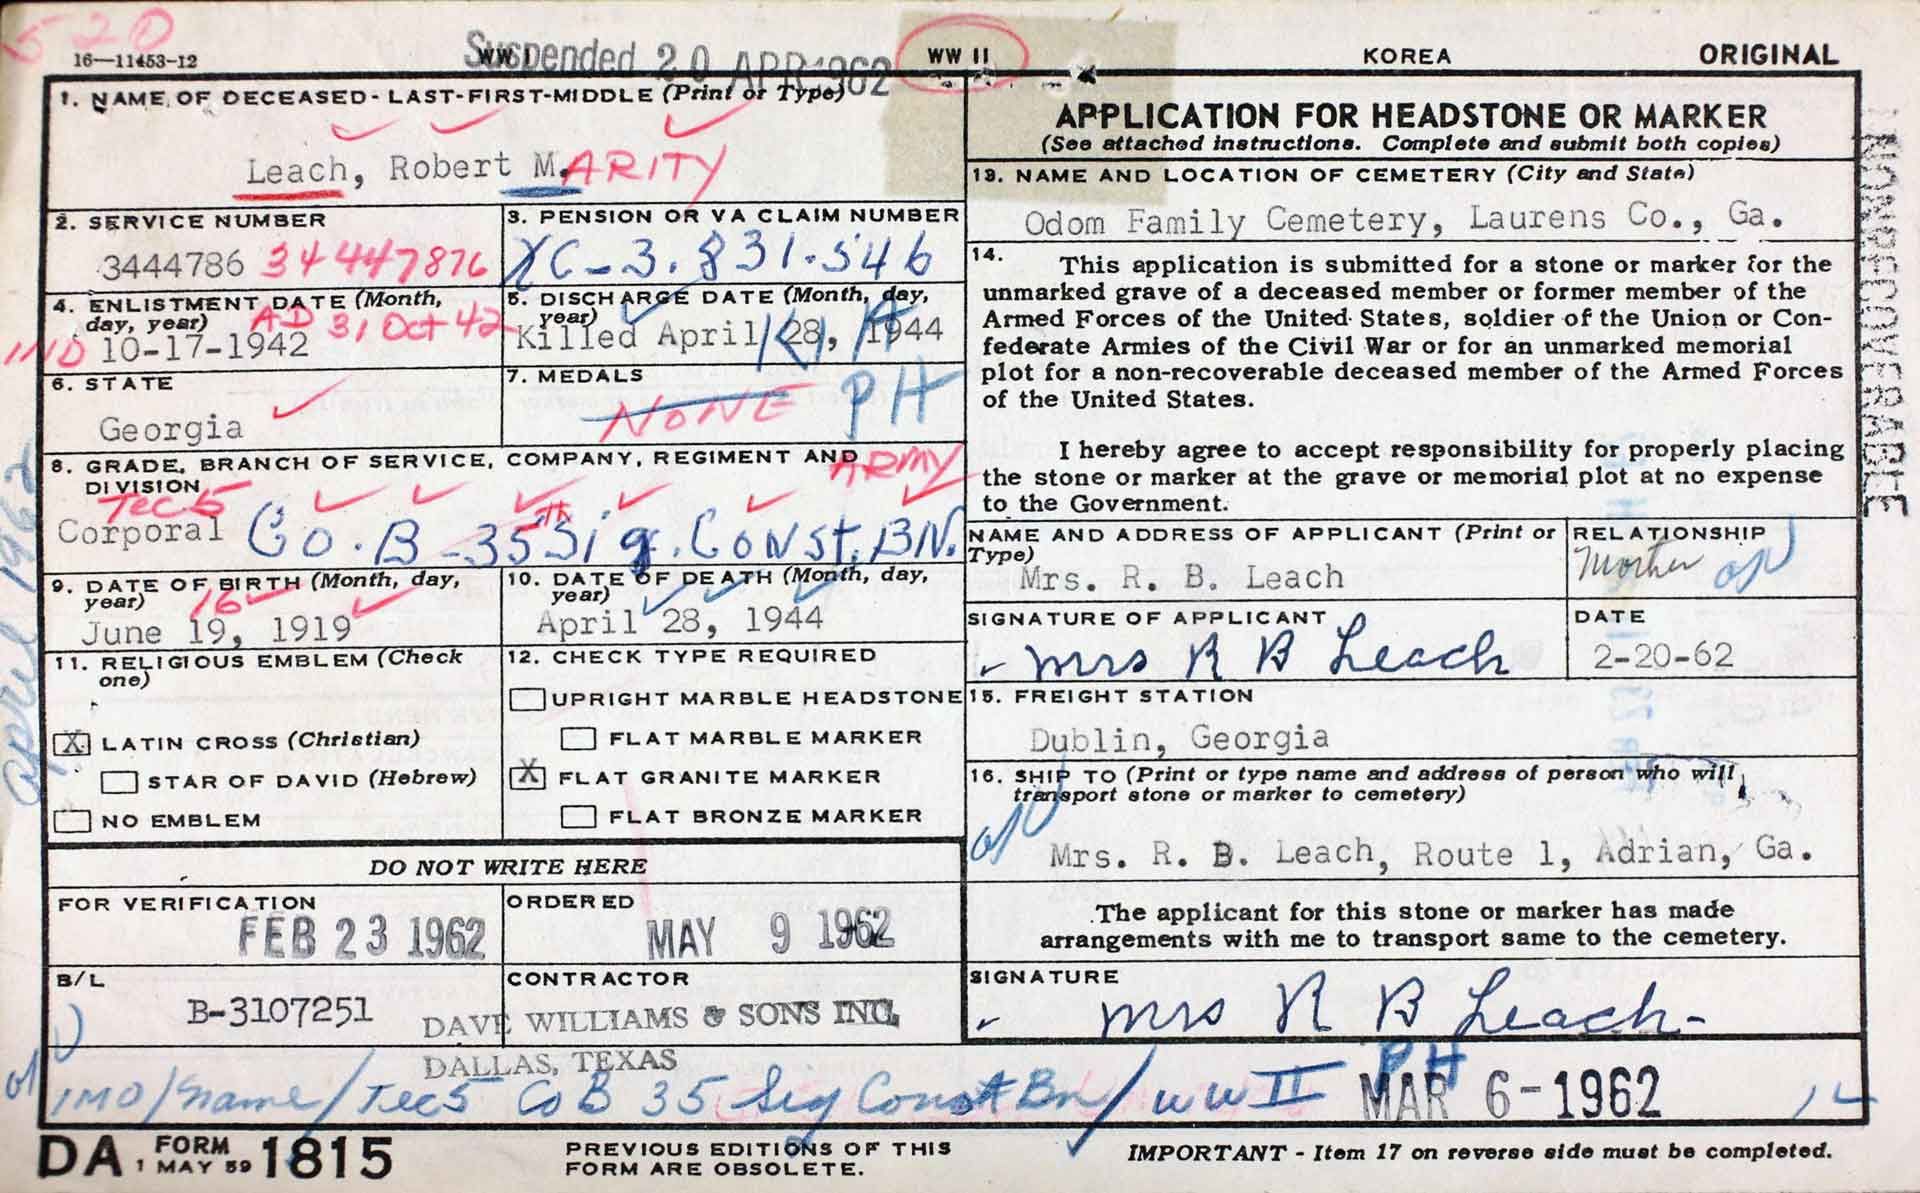 520
16—11453-12
WW I
Suspended 20 APR 1962
WW II
KOREA
ORIGINAL
1. NAME OF DECEASED - LAST-FIRST-MIDDLE (Print or Type)
Leach, Robert M. ARITY
2. SERVICE NUMBER
3444786 34 447876
3. PENSION OR VA CLAIM NUMBER
XC-3.831.546
4. ENLISTMENT DATE (Month,
day, year)
AD 31 Oct 42
IND 10-17-1942
5. DISCHARGE DATE (Month, day,
year)
Killed April 28, 1944
KIA
6. STATE
Georgia
7. MEDALS
NONE PH
8. GRADE, BRANCH OF SERVICE, COMPANY, REGIMENT AND
DIVISION
ARMY
Tec 5
Corporal Co. B - 35th Sig. Const. BN.
9. DATE OF BIRTH (Month, day,
year)
16
June 19, 1919
10. DATE OF DEATH (Month, day,
year)
April 28, 1944
11. RELIGIOUS EMBLEM (Check
one)
X LATIN CROSS (Christian)
STAR OF DAVID (Hebrew)
NO EMBLEM
12. CHECK TYPE REQUIRED
UPRIGHT MARBLE HEADSTONE
FLAT MARBLE MARKER
X FLAT GRANITE MARKER
FLAT BRONZE MARKER
DO NOT WRITE HERE
FOR VERIFICATION
FEB 23 1962
ORDERED
MAY 9 1962
B/L
B-3107251
CONTRACTOR
DAVE WILLIAMS & SONS INC.
DALLAS, TEXAS
APPLICATION FOR HEADSTONE OR MARKER
(See attached instructions. Complete and submit both copies)
13. NAME AND LOCATION OF CEMETERY (City and State)
Odom Family Cemetery, Laurens Co., Ga.
14.
This application is submitted for a stone or marker for the
unmarked grave of a deceased member or former member of the
Armed Forces of the United States, soldier of the Union or Con-
federate Armies of the Civil War or for an unmarked memorial
plot for a non-recoverable deceased member of the Armed Forces
of the United States.
I hereby agree to accept responsibility for properly placing
the stone or marker at the grave or memorial plot at no expense
to the Government.
NAME AND ADDRESS OF APPLICANT (Print or
Type)
Mrs. R. B. Leach
RELATIONSHIP
Mother
SIGNATURE OF APPLICANT
Mrs R B Leach
DATE
2-20-62
15. FREIGHT STATION
Dublin, Georgia
16. SHIP TO (Print or type name and address of person who will
transport stone or marker to cemetery)
Mrs. R. B. Leach, Route 1, Adrian, Ga.
The applicant for this stone or marker has made
arrangements with me to transport same to the cemetery.
SIGNATURE
Mrs R B Leach
NONRECOVERABLE
April 1962
IMO/name/Tec5 Co B 35 Sig Const Bn/WW II PH
MAR 6-1962
DA FORM 1 MAY 59 1815
PREVIOUS EDITIONS OF THIS
FORM ARE OBSOLETE.
IMPORTANT - Item 17 on reverse side must be completed.